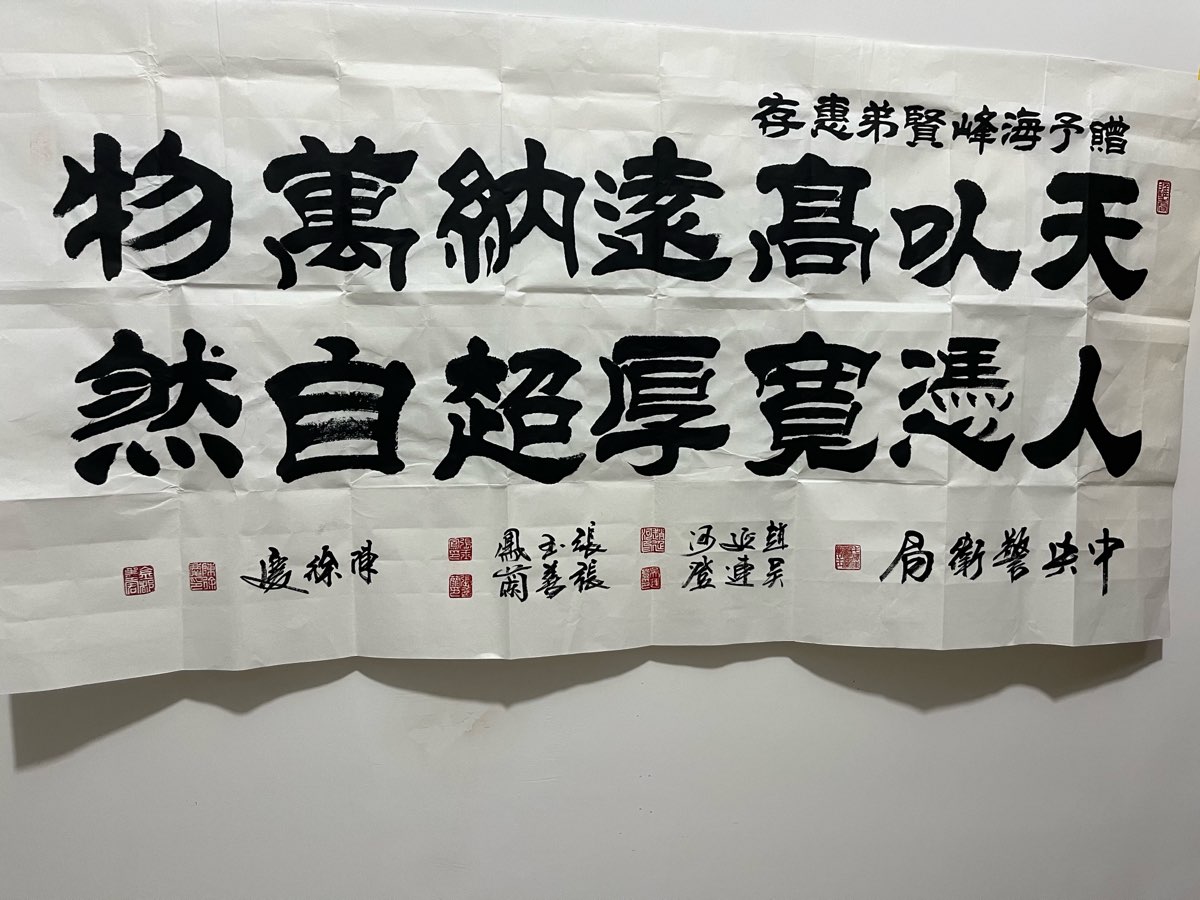 贈予海峰賢弟惠存
天以髙遠納萬物
人憑寬厚超自然
中央警衛局
趙延河
吴連登
張玉鳳
張善蘭
陳徐